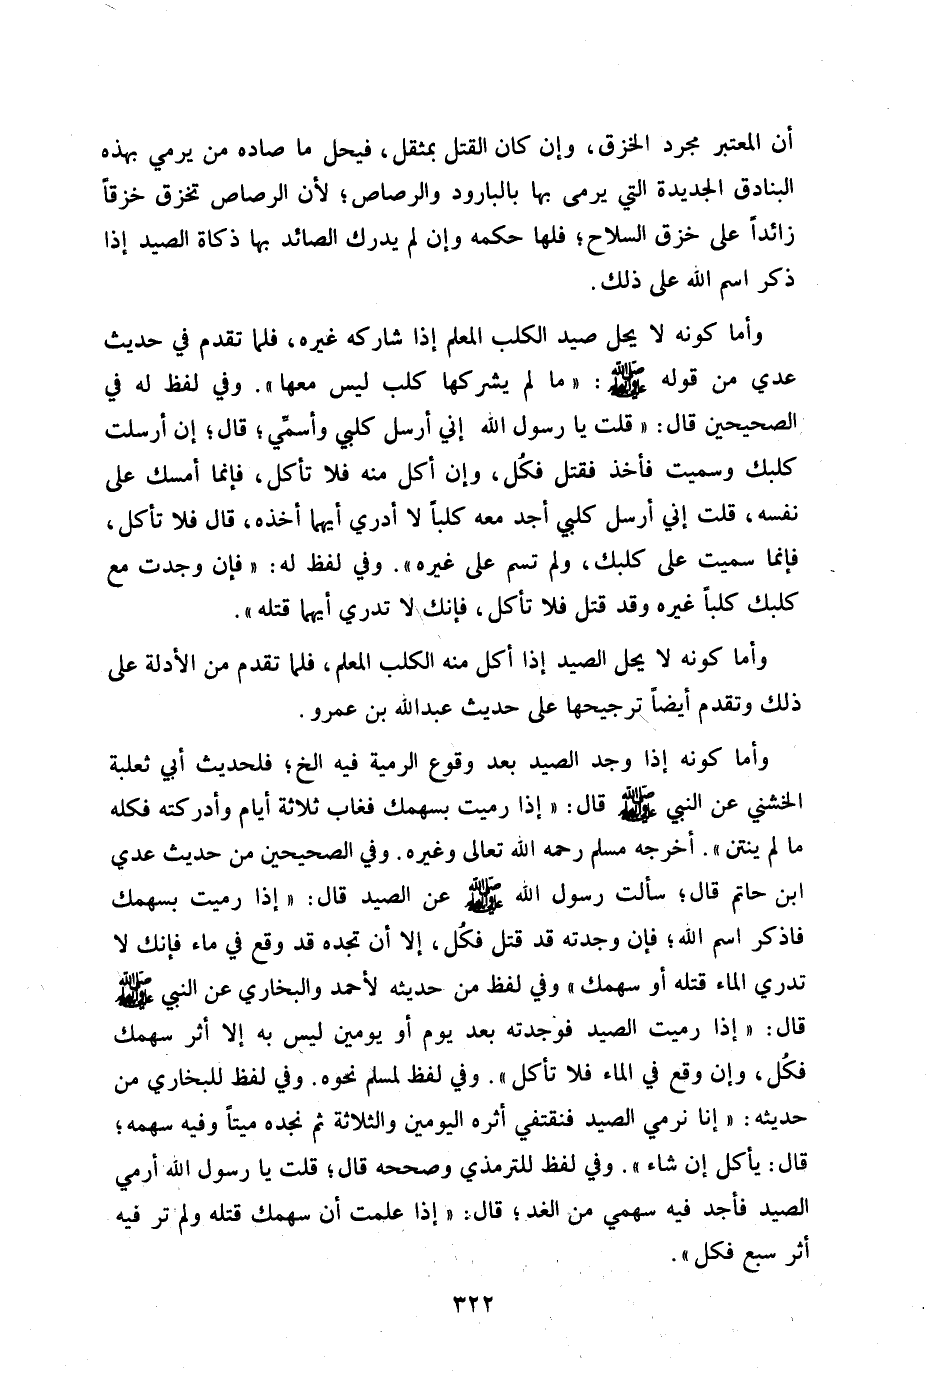 أن المعتبر مجرد الخزق، وإن كان القتل بمثقل، فيحل ما صاده من يرمي بهذه
البنادق الجديدة التي يرمى بها بالبارود والرصاص؛ لأن الرصاص تخزق خزقاً
زائداً على خزق السلاح؛ فلها حكمه وإن لم يدرك الصائد بها ذكاة الصيد إذا
ذكر اسم الله على ذلك.
وأما كونه لا يحل صيد الكلب المعلم إذا شاركه غيره، فلما تقدم في حديث
عدي من قوله ﷺ: « ما لم يشركها كلب ليس معها». وفي لفظ له في
الصحيحين قال: « قلت يا رسول الله إني أرسل كلبي وأسمِّي؛ قال؛ إن أرسلت
كلبك وسميت فأخذ فقتل فكُل، وإن أكل منه فلا تأكل، فإنما أمسك على
نفسه، قلت إني أرسل كلبي أجد معه كلباً لا أدري أيهما أخذه، قال فلا تأكل،
فإنما سميت على كلبك، ولم تسم على غيره». وفي لفظ له: « فإن وجدت مع
كلبك كلباً غيره وقد قتل فلا تأكل، فإنك لا تدري أيهما قتله».
وأما كونه لا يحل الصيد إذا أكل منه الكلب المعلم، فلما تقدم من الأدلة على
ذلك وتقدم أيضاً ترجيحها على حديث عبدالله بن عمرو.
وأما كونه إذا وجد الصيد بعد وقوع الرمية فيه الخ؛ فلحديث أبي ثعلبة
الخشني عن النبي ﷺ قال: « إذا رميت بسهمك فغاب ثلاثة أيام وأدركته فكله
ما لم ينتن». أخرجه مسلم رحمه الله تعالى وغيره. وفي الصحيحين من حديث عدي
ابن حاتم قال؛ سألت رسول الله ﷺ عن الصيد قال: « إذا رميت بسهمك
فاذكر اسم الله؛ فإن وجدته قد قتل فكُل، إلا أن تجده قد وقع في ماء فإنك لا
تدري الماء قتله أو سهمك» وفي لفظ من حديثه لأحمد والبخاري عن النبي ﷺ
قال: « إذا رميت الصيد فوجدته بعد يوم أو يومين ليس به إلا أثر سهمك
فكُل، وإن وقع في الماء فلا تأكل». وفي لفظ لمسلم نحوه. وفي لفظ للبخاري من
حديثه: « إنا نرمي الصيد فنقتفي أثره اليومين والثلاثة ثم نجده ميتاً وفيه سهمه؛
قال: يأكل إن شاء». وفي لفظ للترمذي وصححه قال؛ قلت يا رسول الله أرمي
الصيد فأجد فيه سهمي من الغد؛ قال: « إذا علمت أن سهمك قتله ولم تر فيه
أثر سبع فكل».
٣٢٢